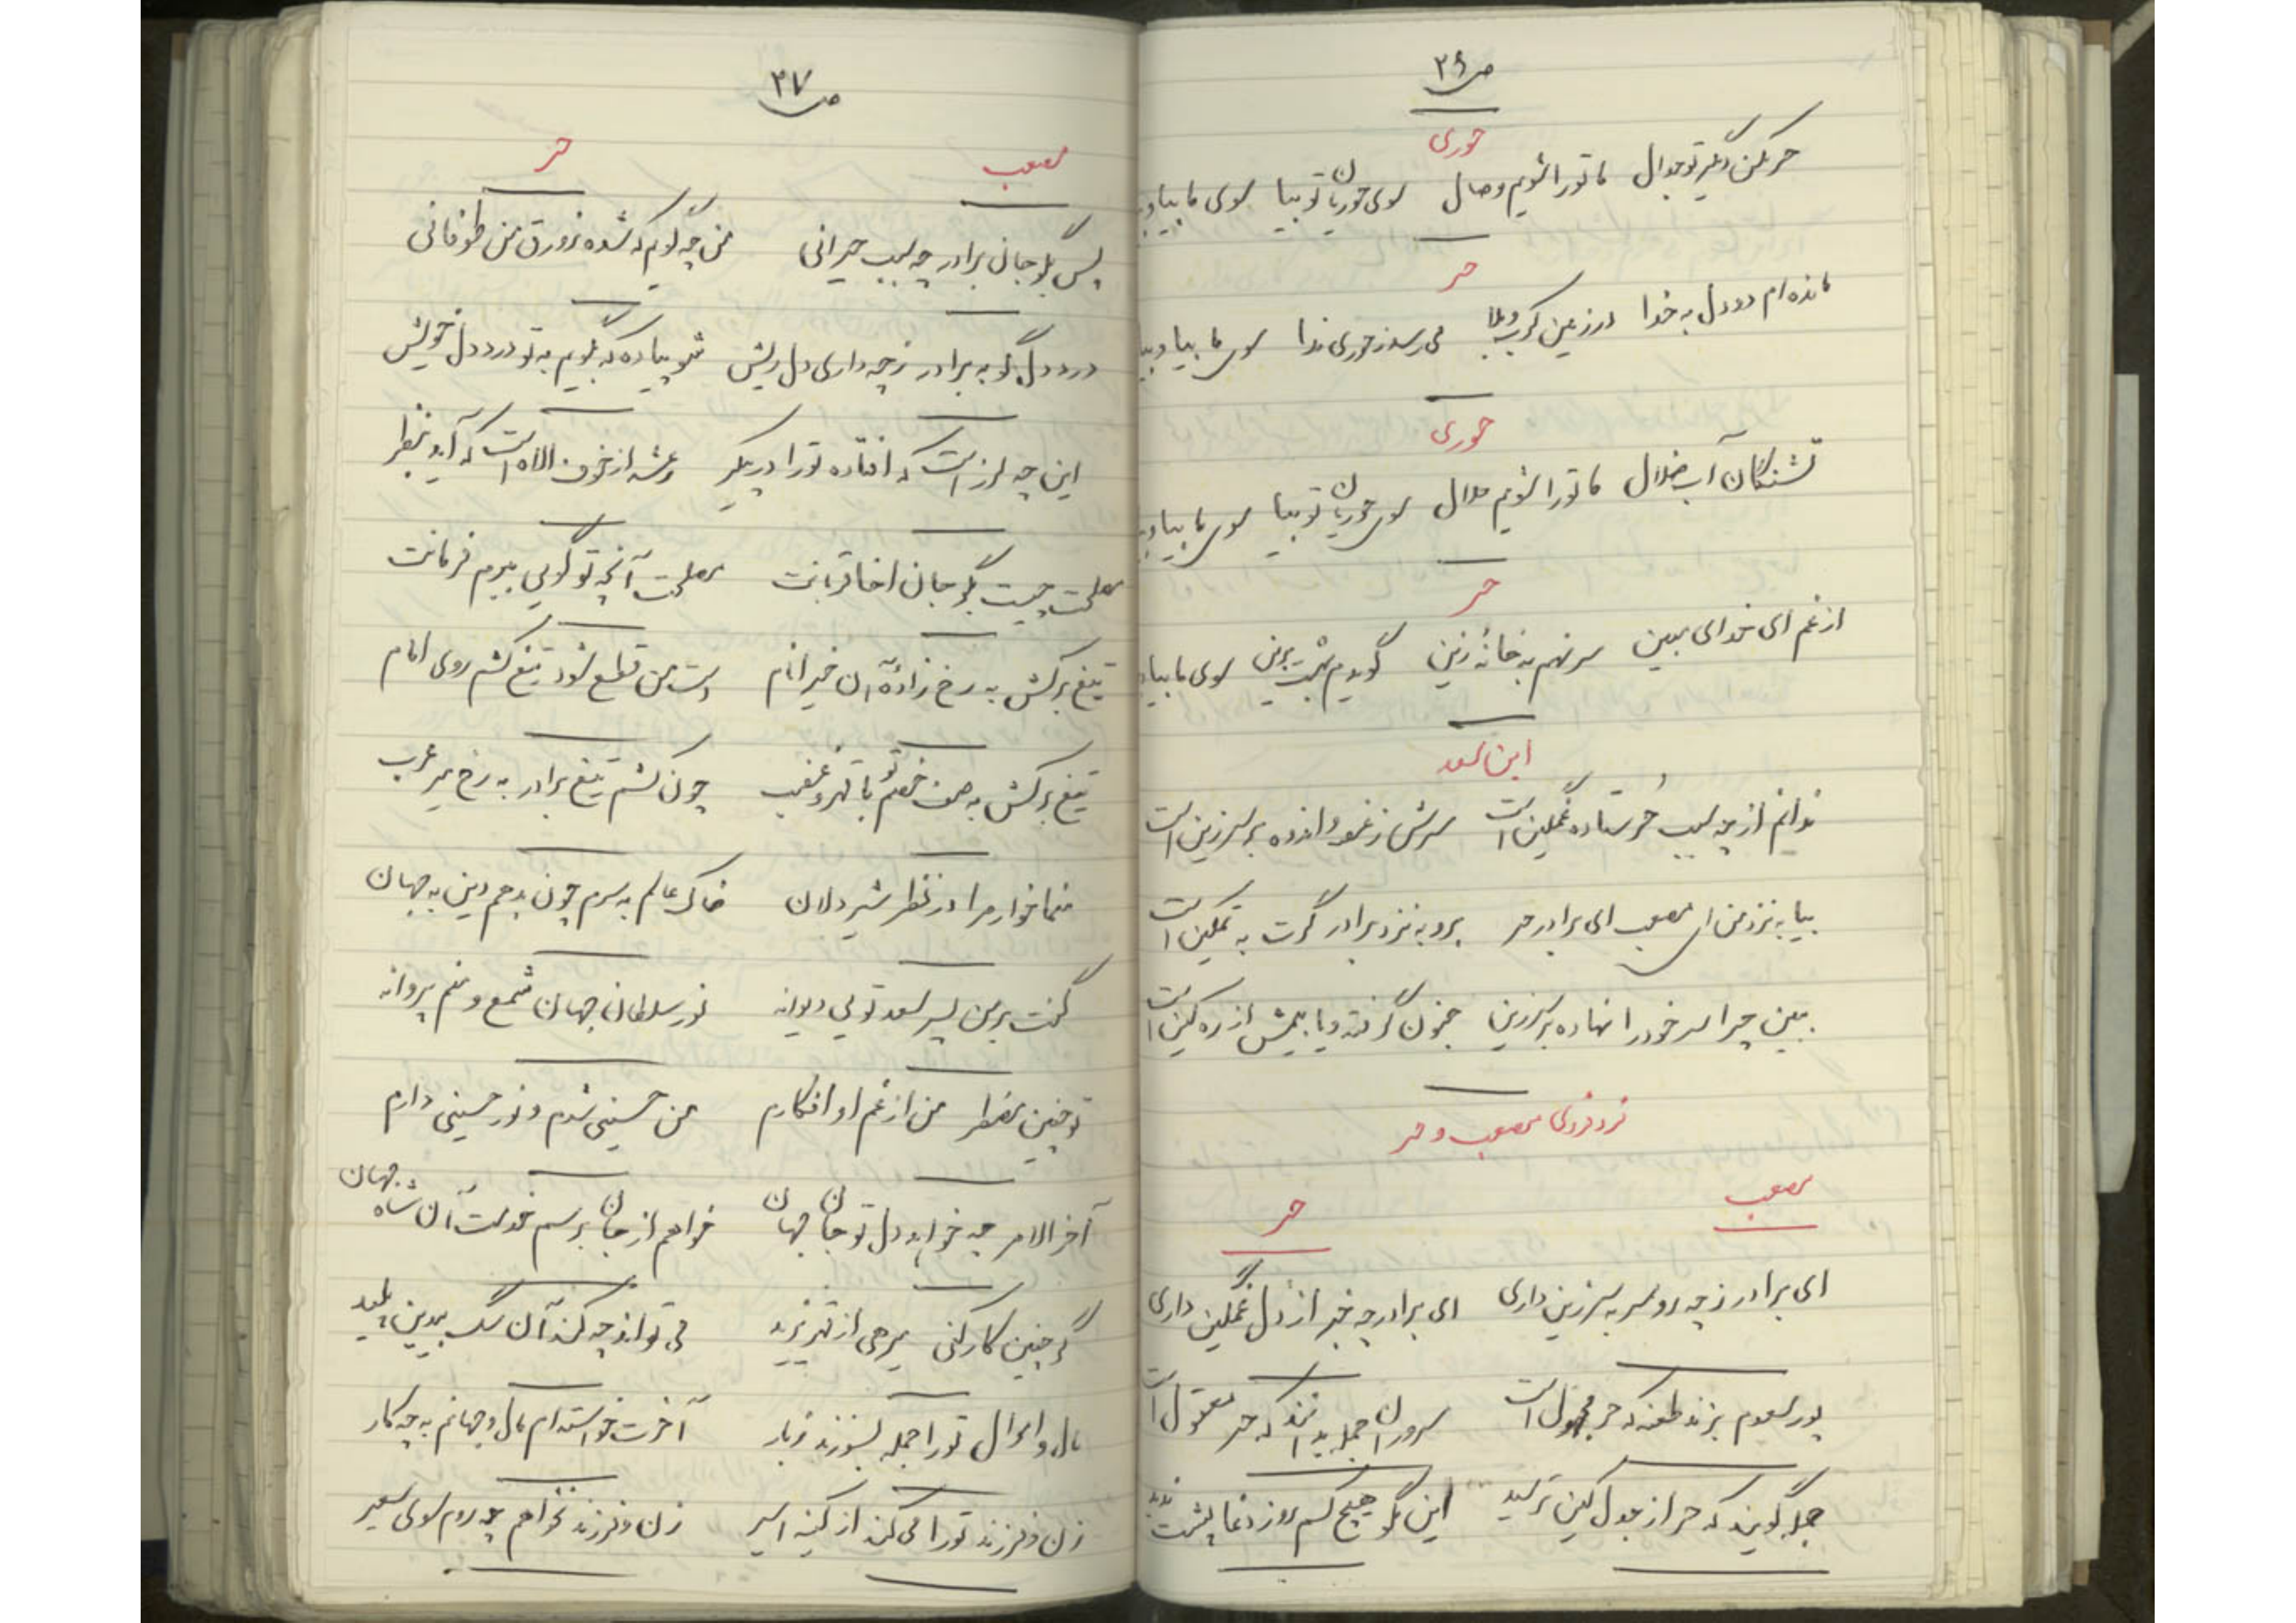 ص ۲۶
حوری
حر مکن دیگر تو جدال ما تو را شویم وصال سوی حوریان تو بیا سوی ما بیا و
حر
مانده‌ام دو دل به خدا در زمین کرب و بلا می رسد ز حوری ندا سوی ما بیا و بیا
حوری
تشنگان آب ضلال ما تو را شویم حلال سوی حوریان تو بیا سوی ما بیا و
حر
از غم ای خدای مبین سر نهم به خانه زین گویدم بهشت برین سوی ما بیا
ابن سعد
ندانم از چه سبب حُر ستاده غمگین است سرش ز غصه و اندوه بر سر زین است
بیا به نزد من ای مصعب ای برادر حر برو به نزد برادر گرت به تمکین است
ببین چرا سر خود را نهاده بر سر زین جنون گرفته و یا بیمش از ره کین است
فرد فردی مصعب و حر
مصعب حر
ای برادر ز چه رو سر به سر زین داری ای برادر چه خبر از دل غمگین داری
پور سعدم بزند طعنه که حر مجهول است سروران جمله بدانند که حر معقول است
جمله گویند که حر از جدل کین ترسید این مگو هیچ کسم روز دغا پشت ندید
ص ۲۷
مصعب حر
پس بگو جان برادر چه سبب حیرانی من چه گویم که شده زورق من طوفانی
درد دل گو به برادر ز چه داری دل ریش شو پیاده که بگویم به تو درد دل خویش
این چه لرز است که افتاده تو را در پیکر رعشه از خوف الاه است که آید بنظر
مصلحت چیست بگو جان اخا قربانت مصلحت آنچه تو گویی ببرم فرمانت
تیغ برکش به رخ زاده آن خیر انام دست من قطع شود تیغ کشم روی امام
تیغ برکش به صف خصم تو با قهر و غضب چون کشم تیغ برادر به رخ میر عرب
منما خوار مرا در نظر شیر دلان خاک عالم به سرم چون بدهم دین به جهان
گفت بر من پسر سعد تویی دیوانه نور سلطان جهان شمع و منم پروانه
تو چنین مضطر من از غم او افکارم من حسینی شدم و نور حسینی دارم
آخر الامر چه خواهد دل تو جان جهان خواهم از جان برسم خدمت آن شاه جهان
گر چنین کار کنی میرهی از قهر یزید می تواند چه کند آن سگ بیدین پلید
مال و اموال تو را جمله بسوزند ز نار آخرت خواسته‌ام مال و جهانم به چه کار
زن و فرزند تو را می کند از کینه اسیر زن و فرزند نخواهم چو روم سوی سعیر